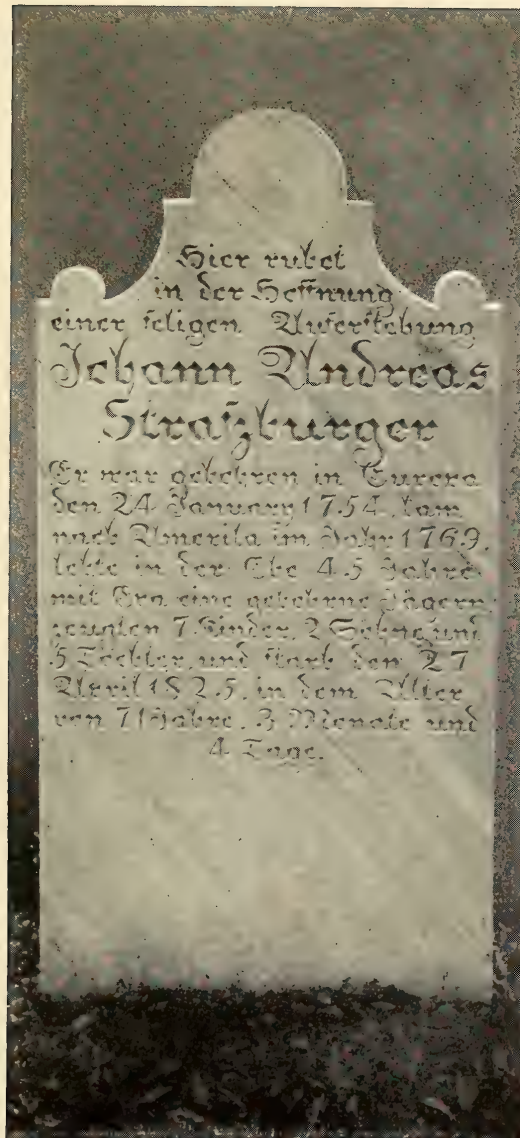 Hier ruhet
in der Hoffnung
einer seligen Auferstehung
Johann Andreas
Straszburger
Er war gebohren in Europa
den 24 January 1754, kam
nach Amerika im Jahr 1769,
lebte in der Ehe 45 Jahre
mit Eva eine gebohrne Jägern,
zeugten 7 Kinder, 2 Sohne und
5 Töchter, und starb den 27
April 1825, in dem Alter
von 71 Jahre, 3 Monate und
4 Tage.